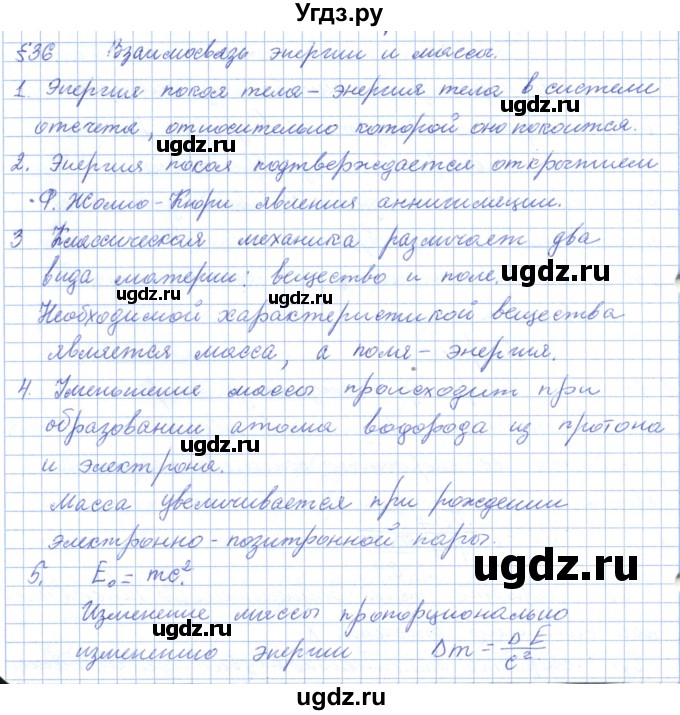 Угдз.ру
§36 Взаимосвязь энергии и массы.
1. Энергия покоя тела – энергия тела в системе
отсчета, относительно которой оно покоится.
ugdz.ru
ugdz.ru
2. Энергия покоя подтверждается открытием
Ф. Жолио-Кюри явления аннигиляции.
ugdz.ru
3 Классическая механика различает два
вида материи: вещество и поле.
ugdz.ru
ugdz.ru
Необходимой характеристикой вещества
является масса, а поля – энергия.
4. Уменьшение массы происходит при
образовании атома водорода из протона
ugdz.ru
и электрона.
ugdz.ru
Масса увеличивается при рождении
электронно-позитронной пары.
ugdz.ru
5. E₀ = mc².
Изменение массы пропорционально
ugdz.ru
изменению энергии Δm = ΔE/c²
ugdz.ru
ugdz.ru